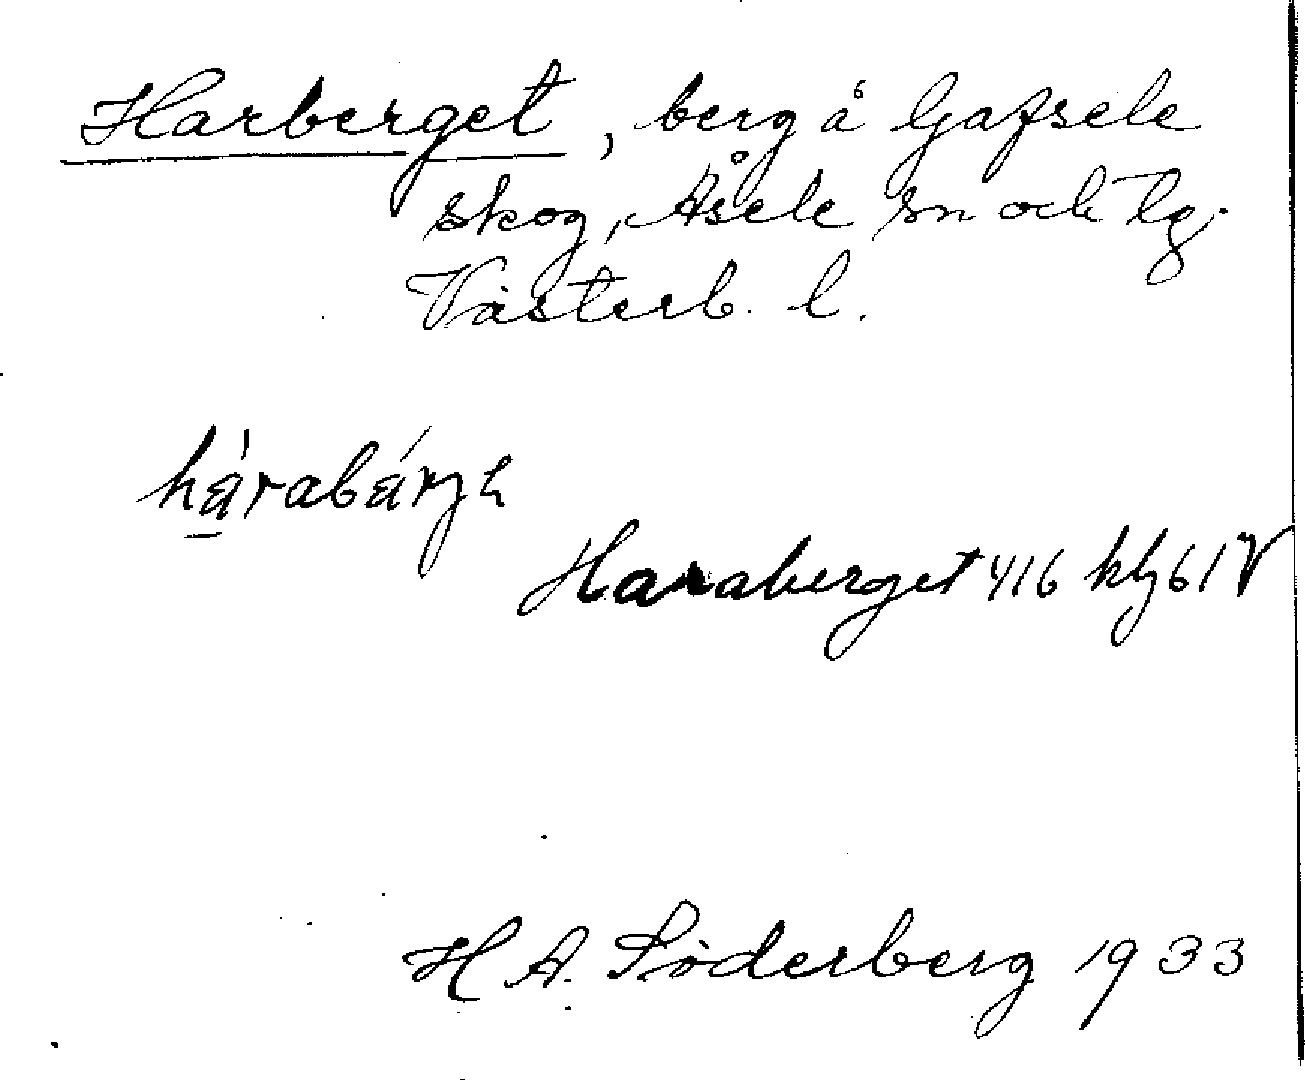 Harberget, berg å Gafsele
skog, Åsele sn och lg.
Västerb. l.
hárabárჳh
Haraberget 416 kbl 61 V
H A. Söderberg 1933